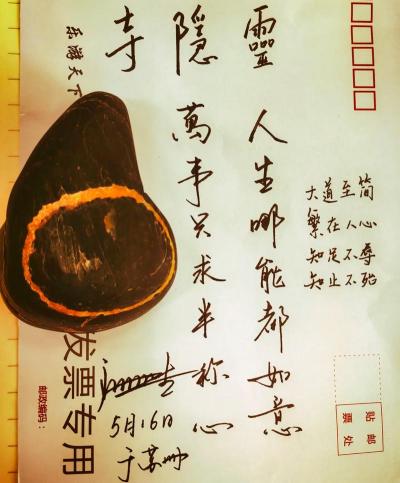 靈隱寺
人生哪能都如意
萬事只求半称心
大道至简
繁在人心
知足不辱
知止不殆
5月16日
于苏州
乐游天下
发票专用
邮政编码：
贴邮
票处